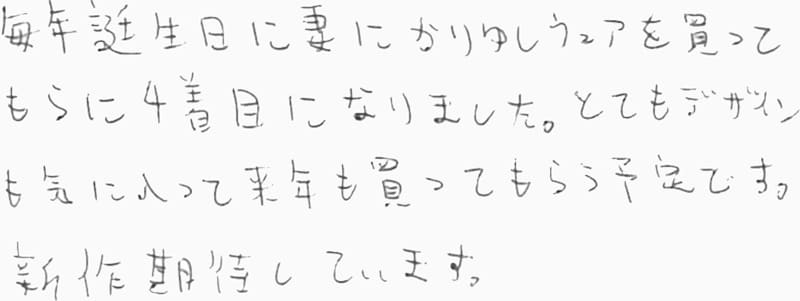 毎年誕生日に妻にかりゆしウェアを買って
もらに4着目になりました。とてもデザイン
も気に入って来年も買ってもらう予定です。
新作期待しています。